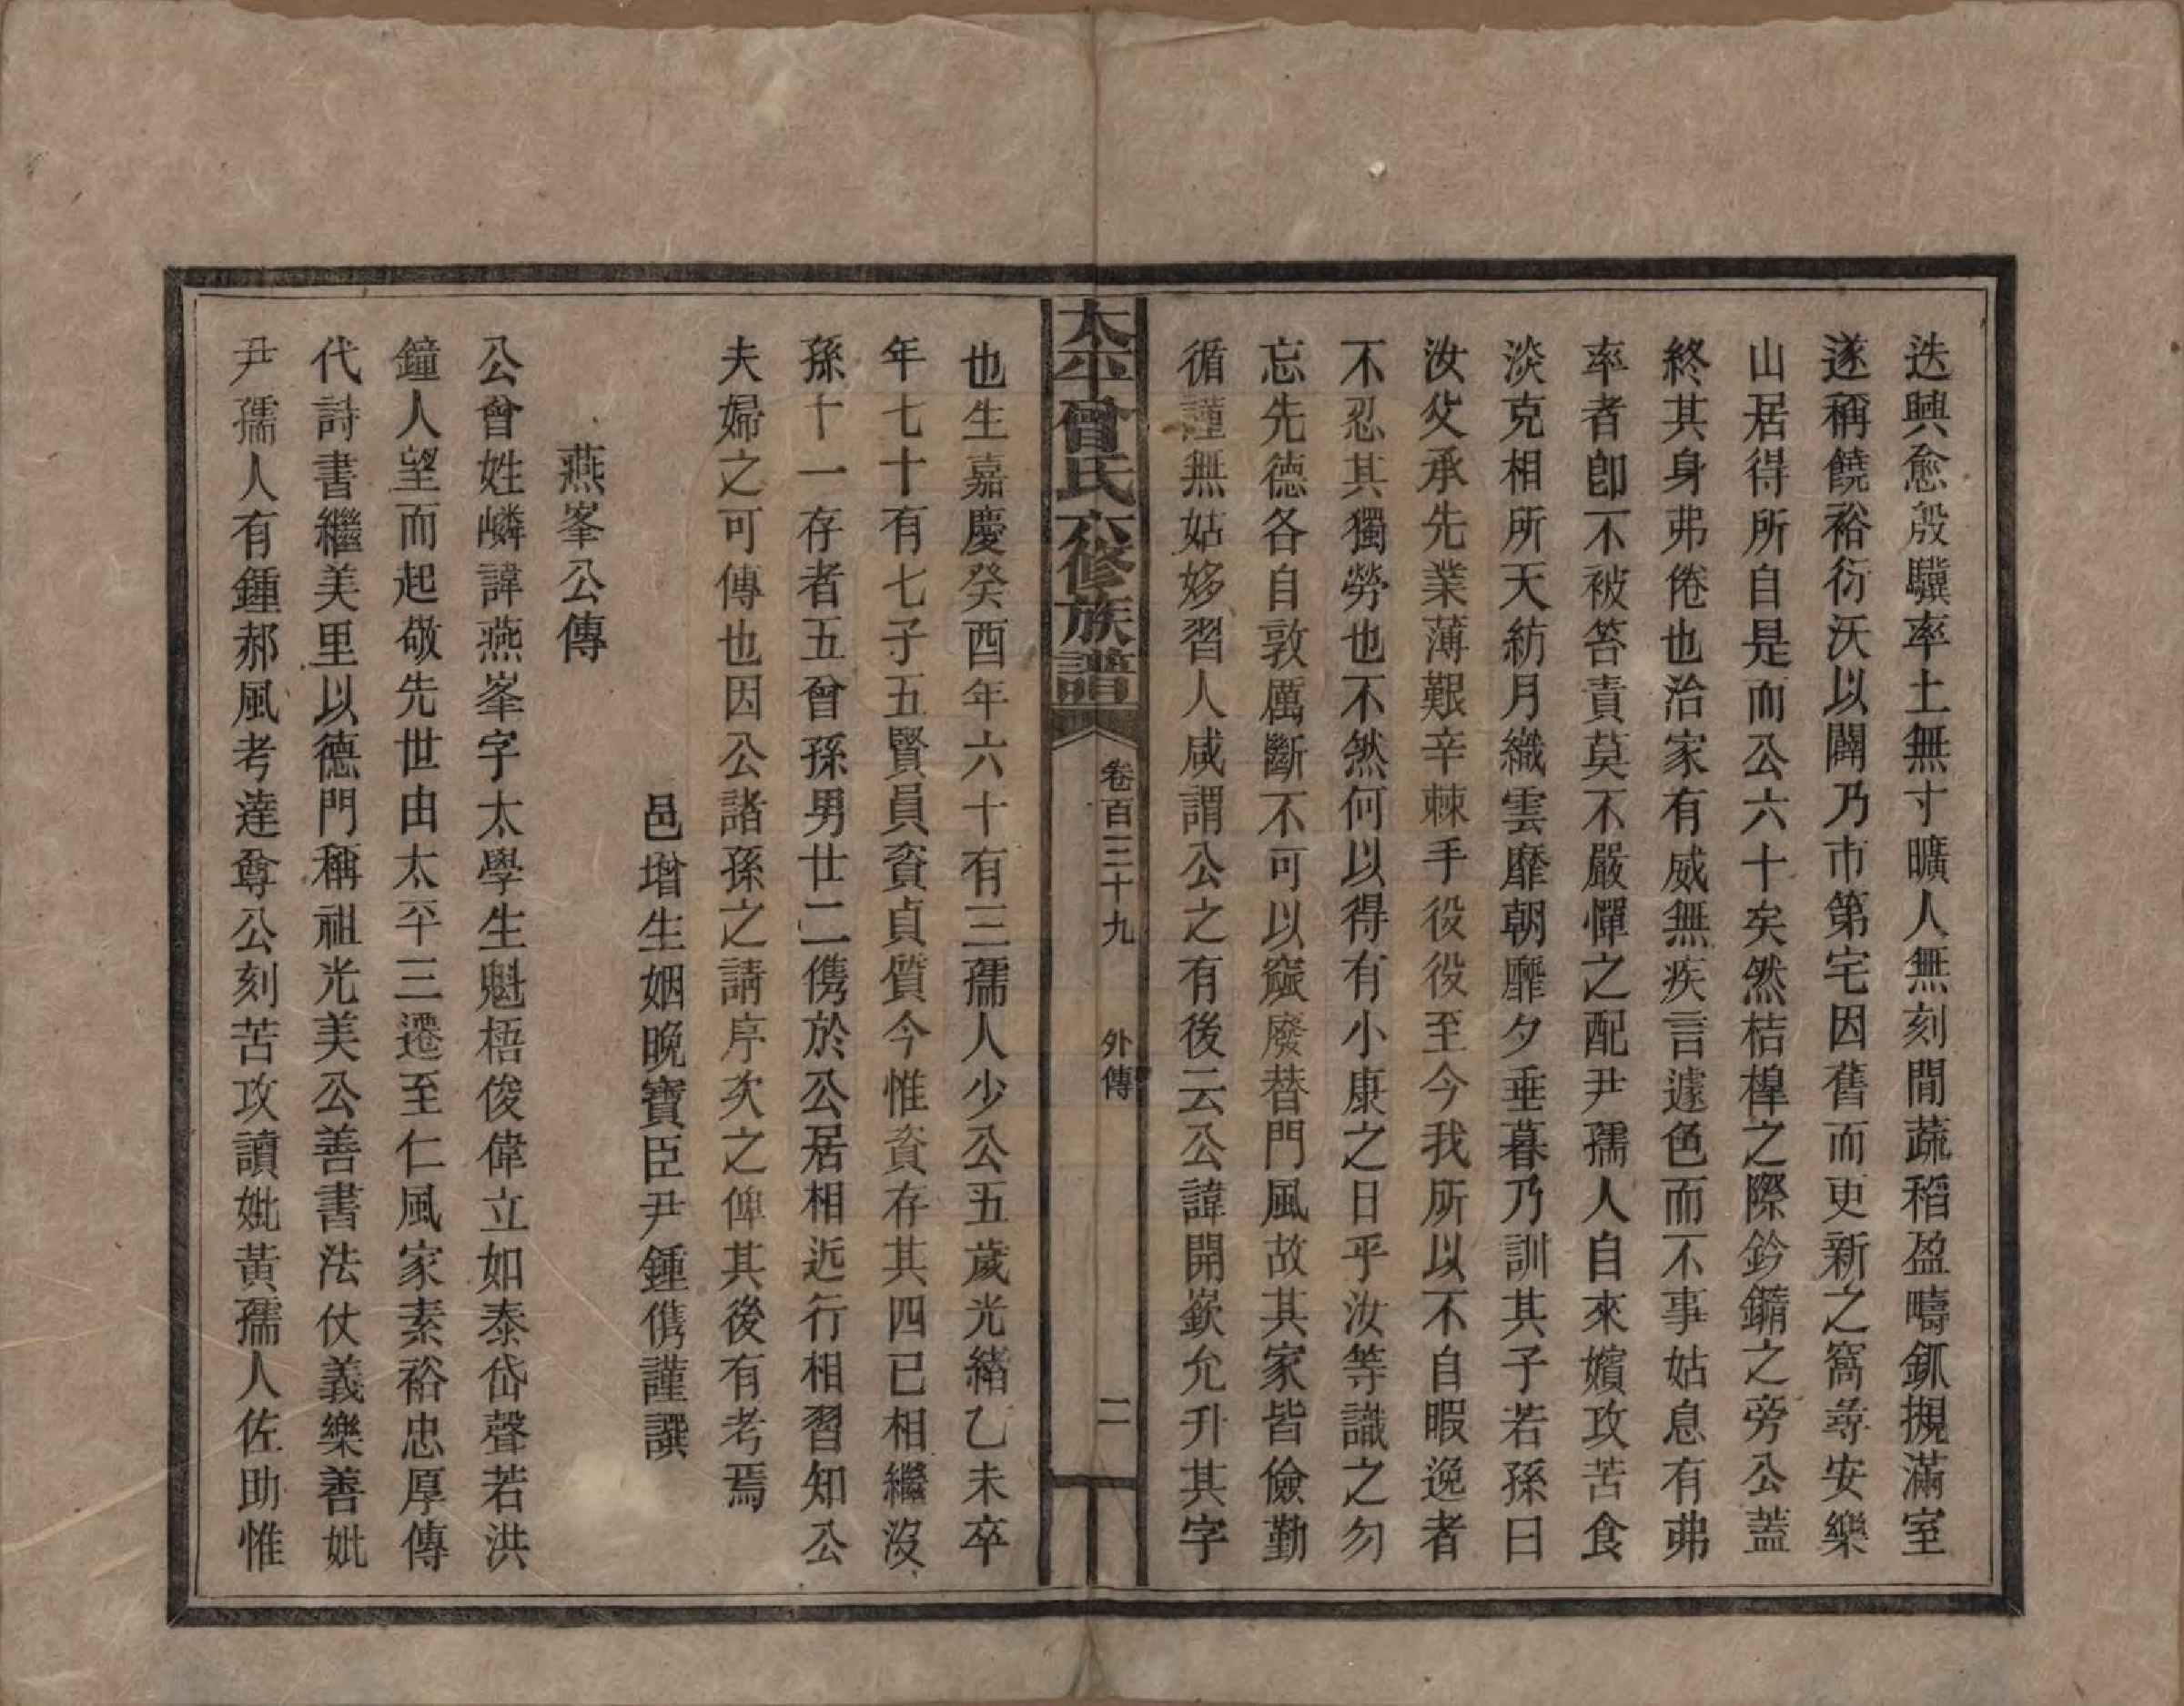 迭興愈殷驥率土無寸曠人無刻閒蔬稻盈疇釽摫滿室
遂稱饒裕衍沃以闢乃市第宅因舊而更新之窩尋安樂
山居得所自是而公六十矣然桔槹之際鈐鑼之旁公蓋
終其身弗倦也治家有威無疾言遽色而不事姑息有弗
率者卽不被笞責莫不嚴憚之配尹孺人自來嬪攻苦食
淡克相所天紡月織雲靡朝靡夕垂暮乃訓其子若孫曰
汝父承先業薄艱辛棘手役役至今我所以不自暇逸者
不忍其獨勞也不然何以得有小康之日乎汝等識之勿
忘先德各自敦厲斷不可以竄廢替門風故其家皆儉勤
循謹無姑姼習人咸謂公之有後云公諱開嶔允升其字
太平曾氏六修族譜
卷百三十九
外傳
二
也生嘉慶癸酉年六十有三孺人少公五歲光緒乙未卒
年七十有七子五賢員貧貞質今惟貧存其四已相繼沒
孫十一存者五曾孫男廿二儁於公居相近行相習知公
夫婦之可傳也因公諸孫之請序次之俾其後有考焉
邑增生姻晚寶臣尹鍾儁謹譔
燕峯公傳
公曾姓嶙諱燕峯字太學生魁梧俊偉立如泰岱聲若洪
鐘人望而起敬先世由太平三遷至仁風家素裕忠厚傳
代詩書繼美里以德門稱祖光美公善書法仗義樂善妣
尹孺人有鍾郝風考達尊公刻苦攻讀妣黃孺人佐助惟